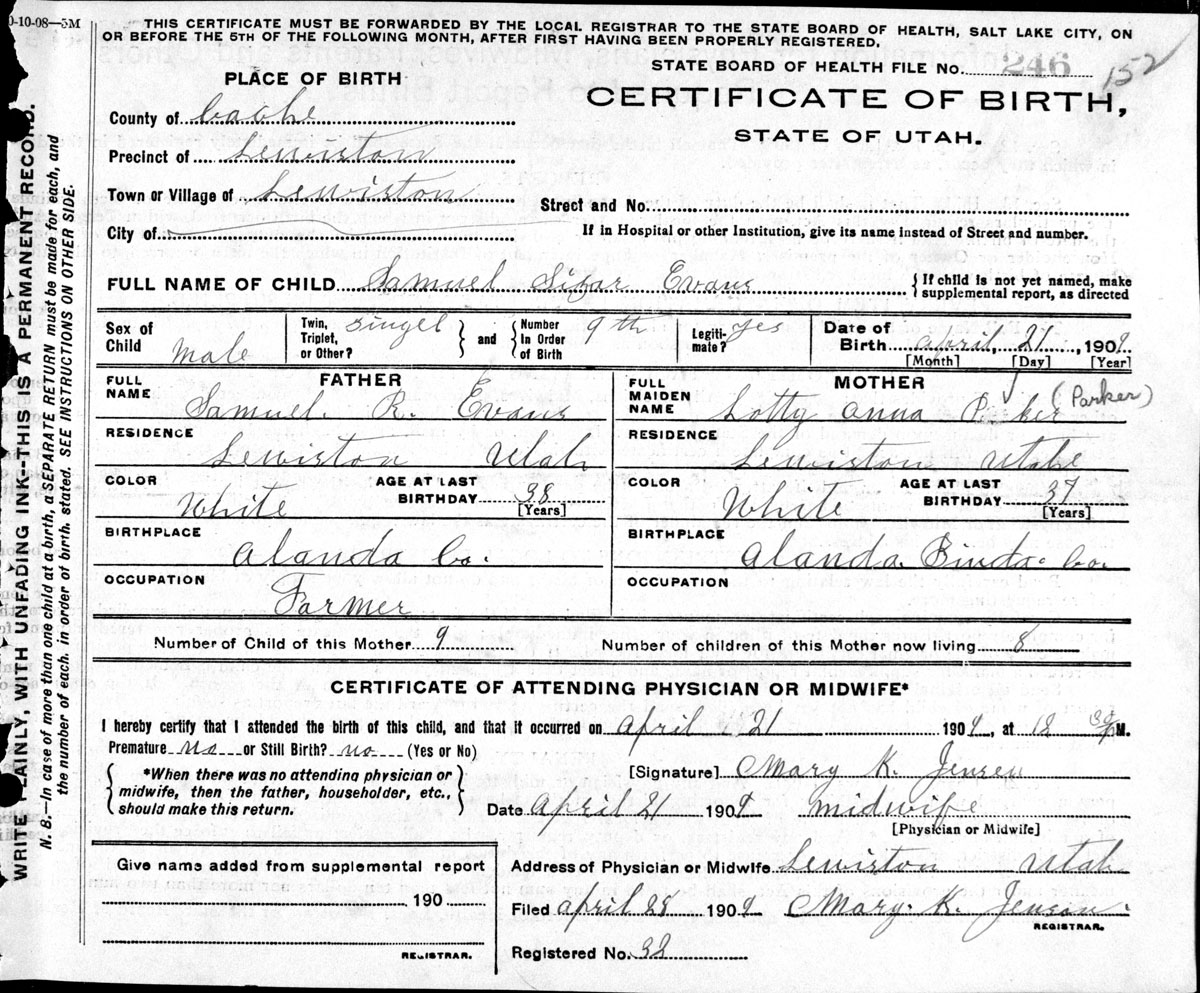 0-10-08—5M
THIS CERTIFICATE MUST BE FORWARDED BY THE LOCAL REGISTRAR TO THE STATE BOARD OF HEALTH, SALT LAKE CITY, ON
OR BEFORE THE 5TH OF THE FOLLOWING MONTH, AFTER FIRST HAVING BEEN PROPERLY REGISTERED.
STATE BOARD OF HEALTH FILE No. 246 152
PLACE OF BIRTH
CERTIFICATE OF BIRTH,
STATE OF UTAH.
County of Cache
Precinct of Lewiston
Town or Village of Lewiston
Street and No.
City of
If in Hospital or other Institution, give its name instead of Street and number.
FULL NAME OF CHILD Samuel Sizar Evans
{If child is not yet named, make
supplemental report, as directed
Sex of Child Male
Twin, Triplet, or Other? Singel } and { Number In Order of Birth 9th
Legiti- mate? yes
Date of Birth April 21, 1909.
[Month] [Day] [Year]
FATHER
FULL NAME Samuel. R. Evans
RESIDENCE Lewiston Utah
COLOR White
AGE AT LAST BIRTHDAY 38
[Years]
BIRTHPLACE Alanda Co.
OCCUPATION Farmer
MOTHER
FULL MAIDEN NAME Lotty Anna (Parker)
RESIDENCE Lewiston Utahe
COLOR White
AGE AT LAST BIRTHDAY 37
[Years]
BIRTHPLACE Alanda. Co.
OCCUPATION
Number of Child of this Mother 9
Number of children of this Mother now living 8
CERTIFICATE OF ATTENDING PHYSICIAN OR MIDWIFE*
I hereby certify that I attended the birth of this child, and that it occurred on April 21 1909, at 12 30 M.
Premature no or Still Birth? no (Yes or No)
{*When there was no attending physician or
midwife, then the father, householder, etc.,
should make this return.}
[Signature] Mary K. Jensen
Date April 21 1909 midwife
[Physician or Midwife]
Give name added from supplemental report
190
REGISTRAR.
Address of Physician or Midwife Lewiston Utah
Filed April 28 1909 Mary. K. Jenson.
REGISTRAR.
Registered No. 32
WRITE PLAINLY, WITH UNFADING INK--THIS IS A PERMANENT RECORD.
N. B.—In case of more than one child at a birth, a SEPARATE RETURN must be made for each, and
the number of each. in order of birth. stated. SEE INSTRUCTIONS ON OTHER SIDE.